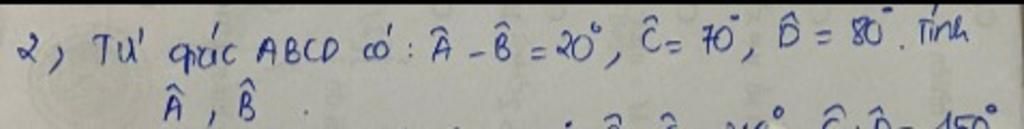 2, Tứ giác ABCD có: Â - B̂ = 20°, Ĉ = 70°, D̂ = 80°. Tính
Â, B̂.